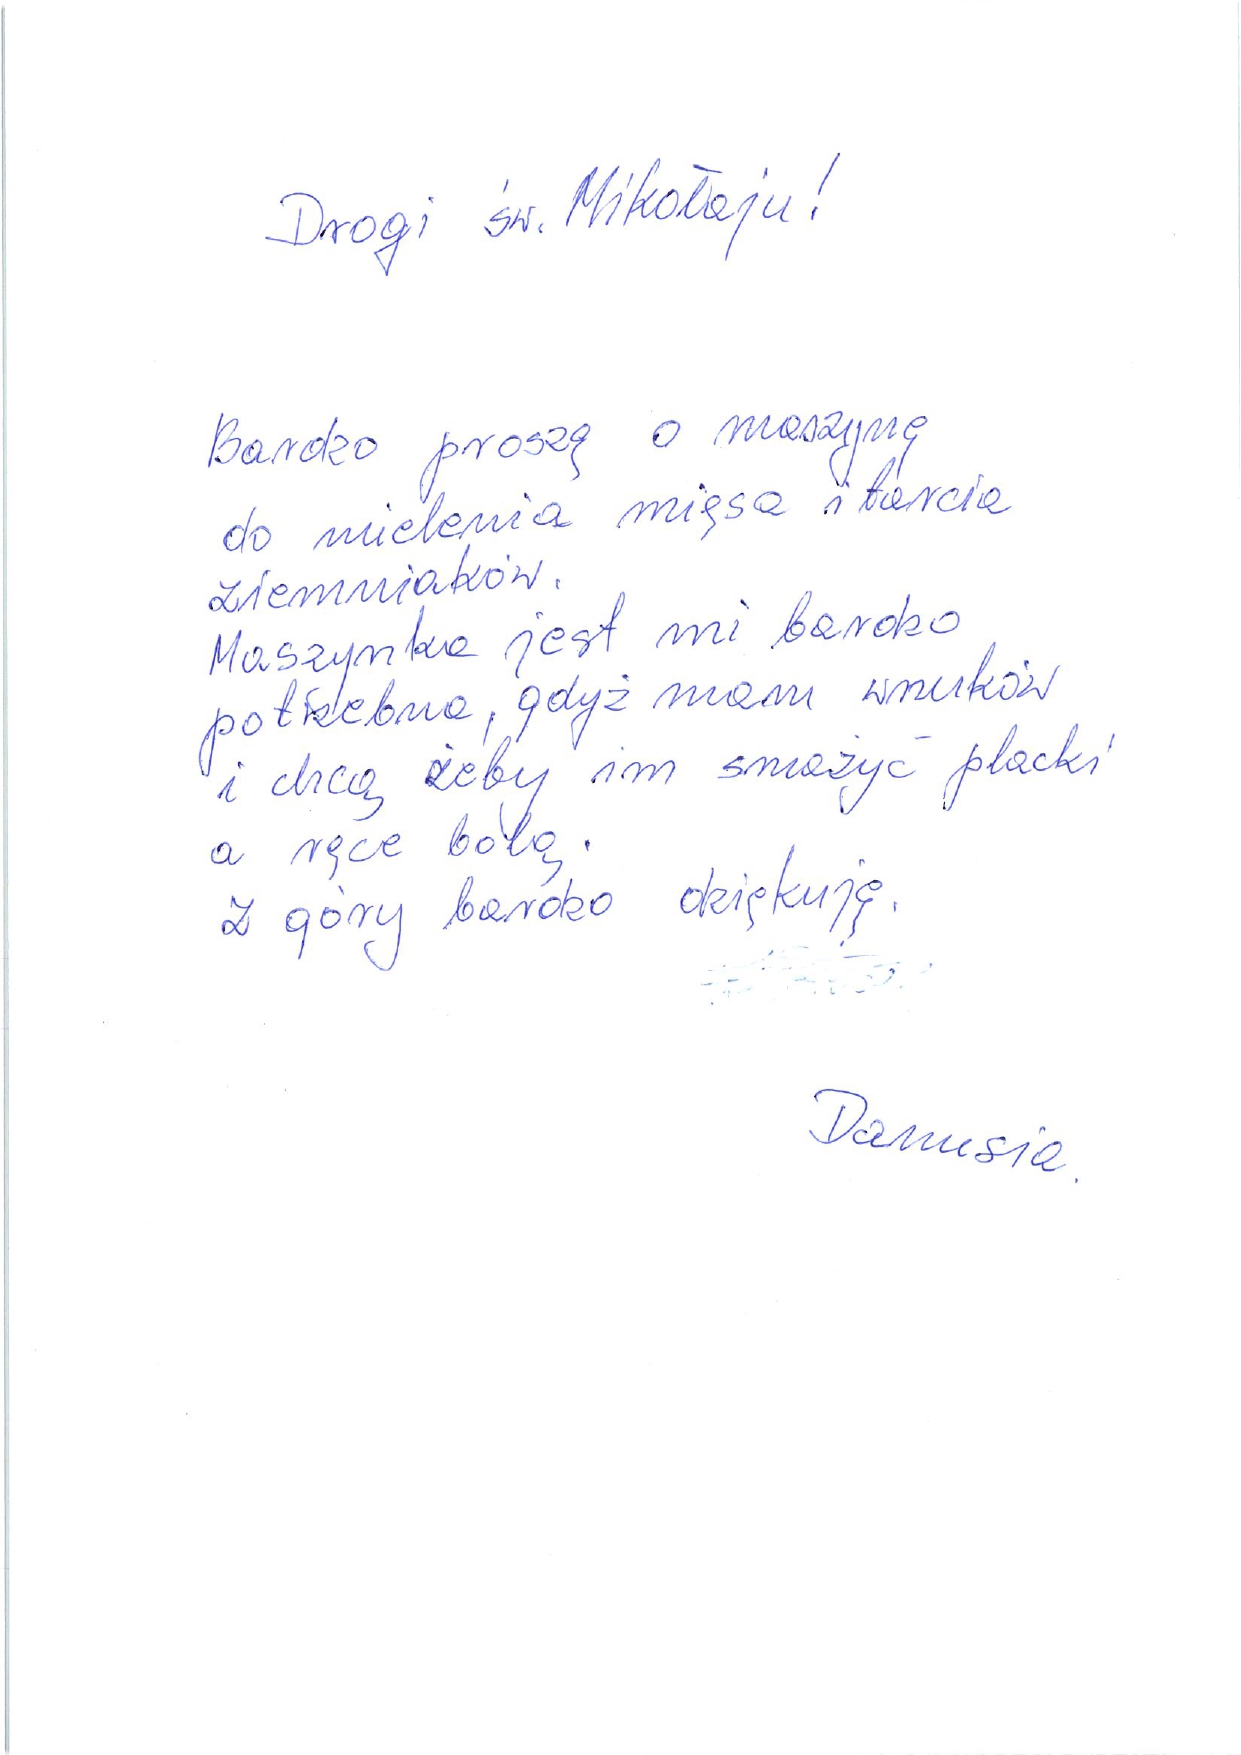 Drogi św. Mikołaju!
Bardzo proszę o maszynę
do mielenia mięsa i tarcia
ziemniaków.
Maszynka jest mi bardzo
potrzebna, gdyż mam wnuków
i chcą żeby im smażyć placki
a ręce bolą.
Z góry bardzo dziękuję.
Danusia.